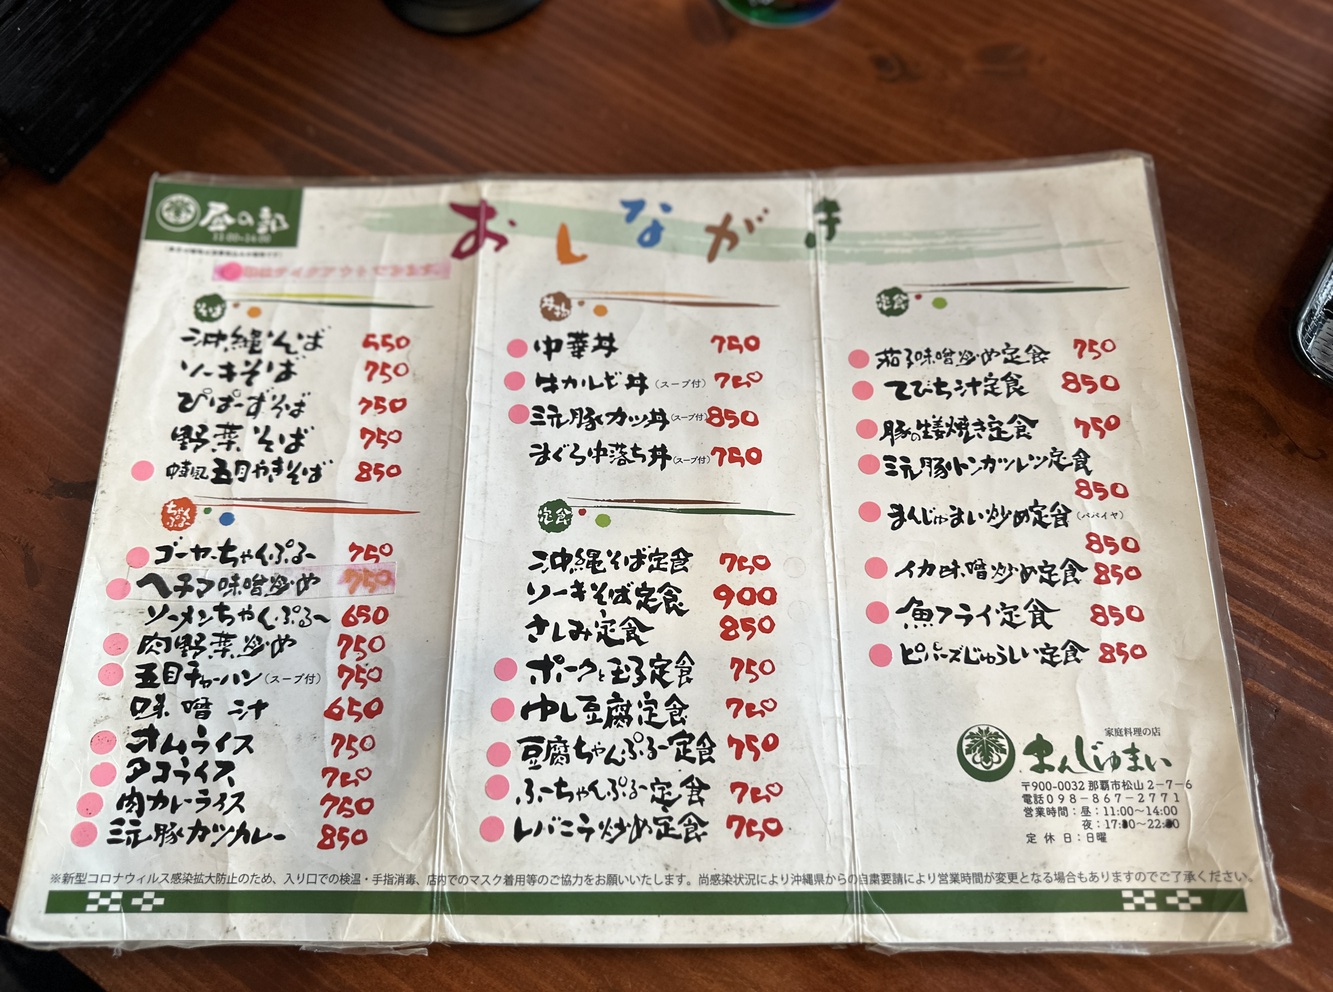 昼の部
11:00~14:00
おしながき
テイクアウトできます
そば
沖縄そば 650
ソーキそば 750
ぴぱーずそば 750
野菜そば 750
中華風五目やきそば 850
ちゃんぷるー
ゴーヤーちゃんぷるー 750
ヘチマ味噌炒め 750
ソーメンちゃんぷるー 650
肉野菜炒め 750
五目チャーハン(スープ付) 750
味噌汁 650
オムライス 750
タコライス 750
肉カレーライス 750
三元豚カツカレー 850
丼物
中華丼 750
牛カルビ丼(スープ付) 750
三元豚カツ丼(スープ付) 850
まぐろ中落ち丼(スープ付) 750
定食
沖縄そば定食 750
ソーキそば定食 900
さしみ定食 850
ポークと玉子定食 750
ゆし豆腐定食 750
豆腐ちゃんぷるー定食 750
ふーちゃんぷるー定食 750
レバニラ炒め定食 750
定食
茄子味噌炒め定食 750
てびち汁定食 850
豚の生姜焼き定食 750
三元豚トンカツレツ定食
850
まんじゅまい炒め定食(パパイヤ)
850
イカ味噌炒め定食 850
魚フライ定食 850
ピパーズじゅうしい定食 850
家庭料理の店
まんじゅまい
〒900-0032 那覇市松山2-7-6
電話098-867-2771
営業時間:昼:11:00~14:00
夜:17:00~22:00
定休日:日曜
※新型コロナウィルス感染拡大防止のため、入り口での検温・手指消毒、店内でのマスク着用等のご協力をお願いいたします。尚感染状況により沖縄県からの自粛要請により営業時間が変更となる場合もありますのでご了承ください。